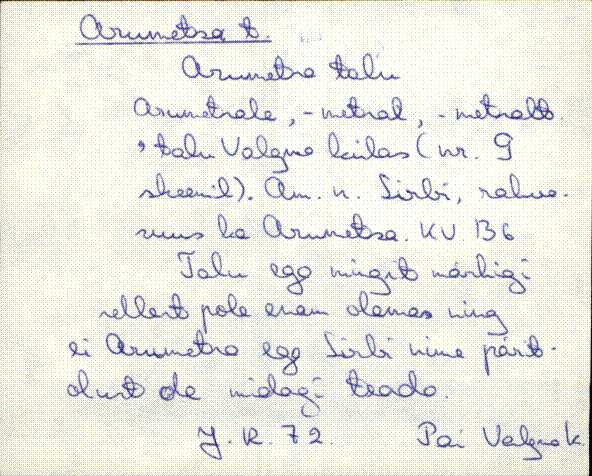 Arumetsa t.
Arumetsa talu
Arumetsale, -metsal, -metsalt
, talu Valgma külas (nr. 9
skeemil). Am. n. Sirbi, rahva-
suus ka Arumetsa. KV B6
Talu ega mingit märkigi
sellest pole enam olemas ning
ei Arumetsa ega Sirbi nime pärit-
olust ole midagi teada.
J. K. 72. Pai Valgma k.